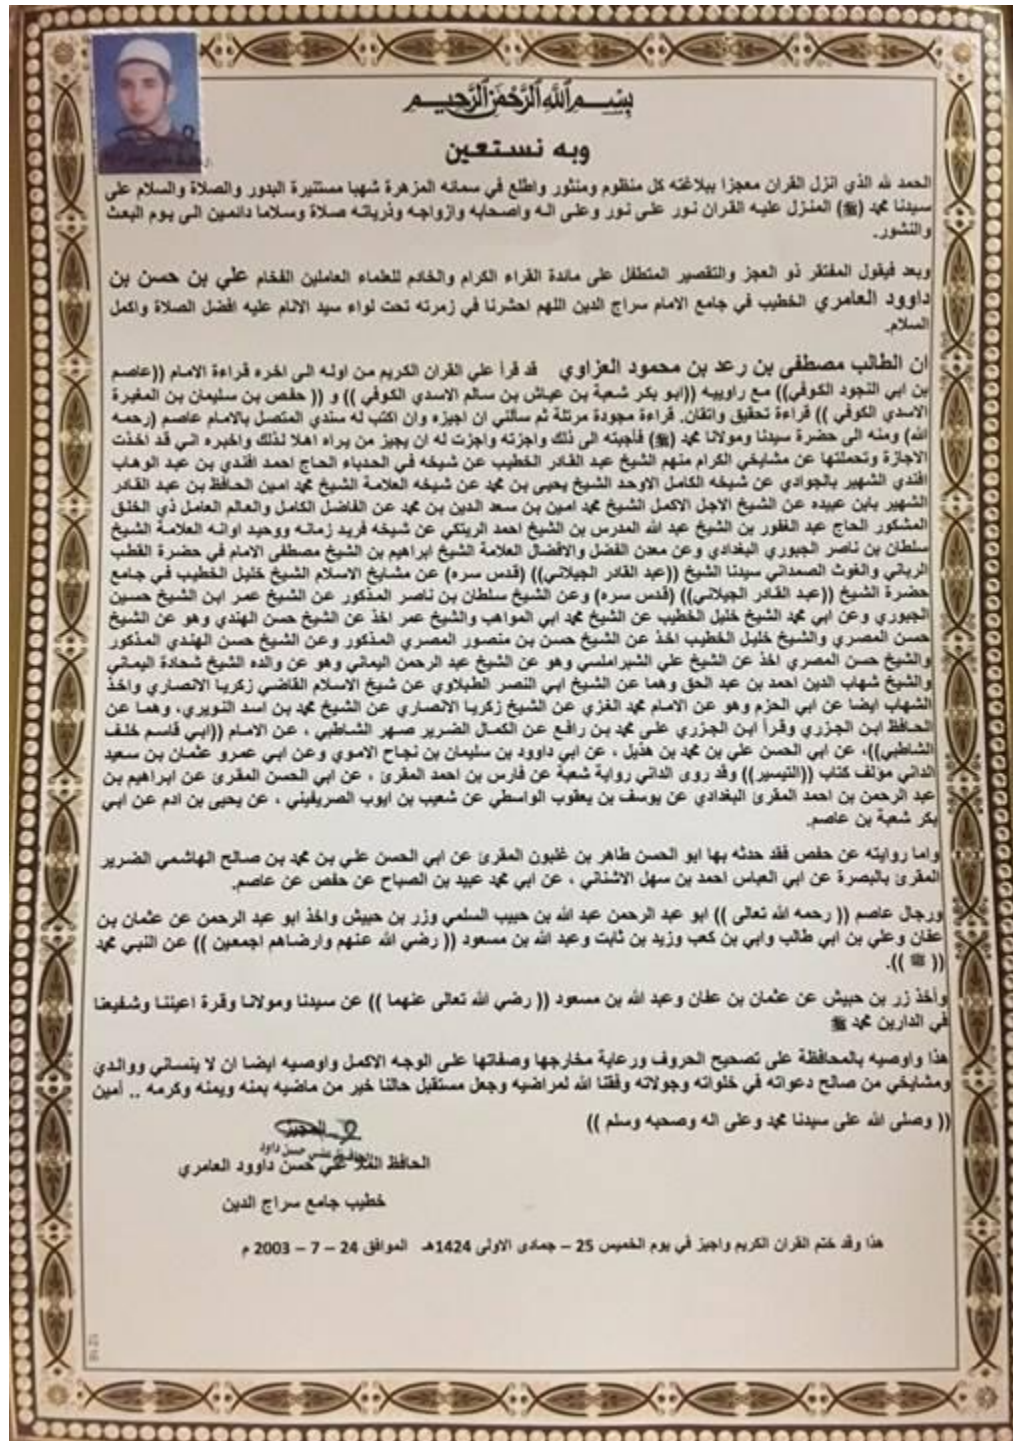 بسم الله الرحمن الرحيم
وبه نستعين
الحمد لله الذي انزل القران معجزا ببلاغته كل منظوم ومنثور واطلع في سمائه المزهرة شهبا مستنيرة البدور والصلاة والسلام على
سيدنا محمد (ﷺ) المنزل عليه القران نور على نور وعلى اله واصحابه وازواجه وذرياته صلاة وسلاما دائمين الى يوم البعث
والنشور.
وبعد فيقول المفتقر ذو العجز والتقصير المتطفل على مائدة القراء الكرام والخادم للعلماء العاملين الفخام علي بن حسن بن
داوود العامري الخطيب في جامع الامام سراج الدين اللهم احشرنا في زمرته تحت لواء سيد الانام عليه افضل الصلاة واكمل
السلام.
ان الطالب مصطفى بن رعد بن محمود العزاوي قد قرأ علي القران الكريم من اوله الى اخره قراءة الامام ((عاصم
بن ابي النجود الكوفي)) مع راوييه ((ابو بكر شعبة بن عياش بن سالم الاسدي الكوفي )) و (( حفص بن سليمان بن المغيرة
الاسدي الكوفي )) قراءة تحقيق واتقان. قراءة مجودة مرتلة ثم سألني ان اجيزه وان اكتب له سندي المتصل بالامام عاصم (رحمه
الله) ومنه الى حضرة سيدنا ومولانا محمد (ﷺ) فأجبته الى ذلك واجزته واجزت له ان يجيز من يراه اهلا لذلك واخبره اني قد اخذت
الاجازة وتحملتها عن مشايخي الكرام منهم الشيخ عبد القادر الخطيب عن شيخه في الحدباء الحاج احمد افندي بن عبد الوهاب
افندي الشهير بالجوادي عن شيخه الكامل الاوحد الشيخ يحيى بن محمد عن شيخه العلامة الشيخ محمد امين الحافظ بن عبد القادر
الشهير بابن عبيده عن الشيخ الاجل الاكمل الشيخ محمد امين بن سعد الدين بن محمد عن الفاضل الكامل والعالم العامل ذي الخلق
المشكور الحاج عبد الغفور بن الشيخ عبد الله المدرس بن الشيخ احمد الربتكي عن شيخه فريد زمانه ووحيد اوانه العلامة الشيخ
سلطان بن ناصر الجبوري البغدادي وعن معدن الفضل والافضال العلامة الشيخ ابراهيم بن الشيخ مصطفى الامام في حضرة القطب
الرباني والغوث الصمداني سيدنا الشيخ ((عبد القادر الجيلاني)) (قدس سره) عن مشايخ الاسلام الشيخ خليل الخطيب في جامع
حضرة الشيخ ((عبد القادر الجيلاني)) (قدس سره) وعن الشيخ سلطان بن ناصر المذكور عن الشيخ عمر ابن الشيخ حسين
الجبوري وعن ابي محمد الشيخ خليل الخطيب عن الشيخ محمد ابي المواهب والشيخ عمر اخذ عن الشيخ حسن الهندي وهو عن الشيخ
حسن المصري والشيخ خليل الخطيب اخذ عن الشيخ حسن بن منصور المصري المذكور وعن الشيخ حسن الهندي المذكور
والشيخ حسن المصري اخذ عن الشيخ علي الشبراملسي وهو عن الشيخ عبد الرحمن اليماني وهو عن والده الشيخ شحادة اليماني
والشيخ شهاب الدين احمد بن عبد الحق وهما عن الشيخ ابي النصر الطبلاوي عن شيخ الاسلام القاضي زكريا الانصاري واخذ
الشهاب ايضا عن ابي الحزم وهو عن الامام محمد الغزي عن الشيخ زكريا الانصاري عن الشيخ محمد بن اسد النويري، وهما عن
الحافظ ابن الجزري وقرأ ابن الجزري على محمد بن رافع عن الكمال الضرير صهر الشاطبي ، عن الامام ((ابي قاسم خلف
الشاطبي))، عن ابي الحسن علي بن محمد بن هذيل ، عن ابي داوود بن سليمان بن نجاح الاموي وعن ابي عمرو عثمان بن سعيد
الداني مؤلف كتاب ((التيسير)) وقد روى الداني رواية شعبة عن فارس بن احمد المقرئ ، عن ابي الحسن المقرئ عن ابراهيم بن
عبد الرحمن بن احمد المقرئ البغدادي عن يوسف بن يعقوب الواسطي عن شعيب بن ايوب الصريفيني ، عن يحيى بن ادم عن ابي
بكر شعبة بن عاصم.
واما روايته عن حفص فقد حدثه بها ابو الحسن طاهر بن غلبون المقرئ عن ابي الحسن علي بن محمد بن صالح الهاشمي الضرير
المقرئ بالبصرة عن ابي العباس احمد بن سهل الاشناني ، عن ابي محمد عبيد بن الصباح عن حفص عن عاصم.
ورجال عاصم (( رحمه الله تعالى )) ابو عبد الرحمن عبد الله بن حبيب السلمي وزر بن حبيش واخذ ابو عبد الرحمن عن عثمان بن
عفان وعلي بن ابي طالب وابي بن كعب وزيد بن ثابت وعبد الله بن مسعود (( رضي الله عنهم وارضاهم اجمعين )) عن النبي محمد
(( ﷺ )).
وأخذ زر بن حبيش عن عثمان بن عفان وعبد الله بن مسعود (( رضي الله تعالى عنهما )) عن سيدنا ومولانا وقرة اعيننا وشفيعنا
في الدارين محمد ﷺ
هذا واوصيه بالمحافظة على تصحيح الحروف ورعاية مخارجها وصفاتها على الوجه الاكمل واوصيه ايضا ان لا ينساني ووالدي
ومشايخي من صالح دعواته في خلواته وجولاته وفقنا الله لمراضيه وجعل مستقبل حالنا خير من ماضيه بمنه ويمنه وكرمه .. أمين
(( وصلى الله على سيدنا محمد وعلى اله وصحبه وسلم ))
المجيز
الحافظ الملا علي حسن داوود العامري
خطيب جامع سراج الدين
هذا وقد ختم القران الكريم واجيز في يوم الخميس 25 – جمادى الاولى 1424هـ الموافق 24 – 7 – 2003 م